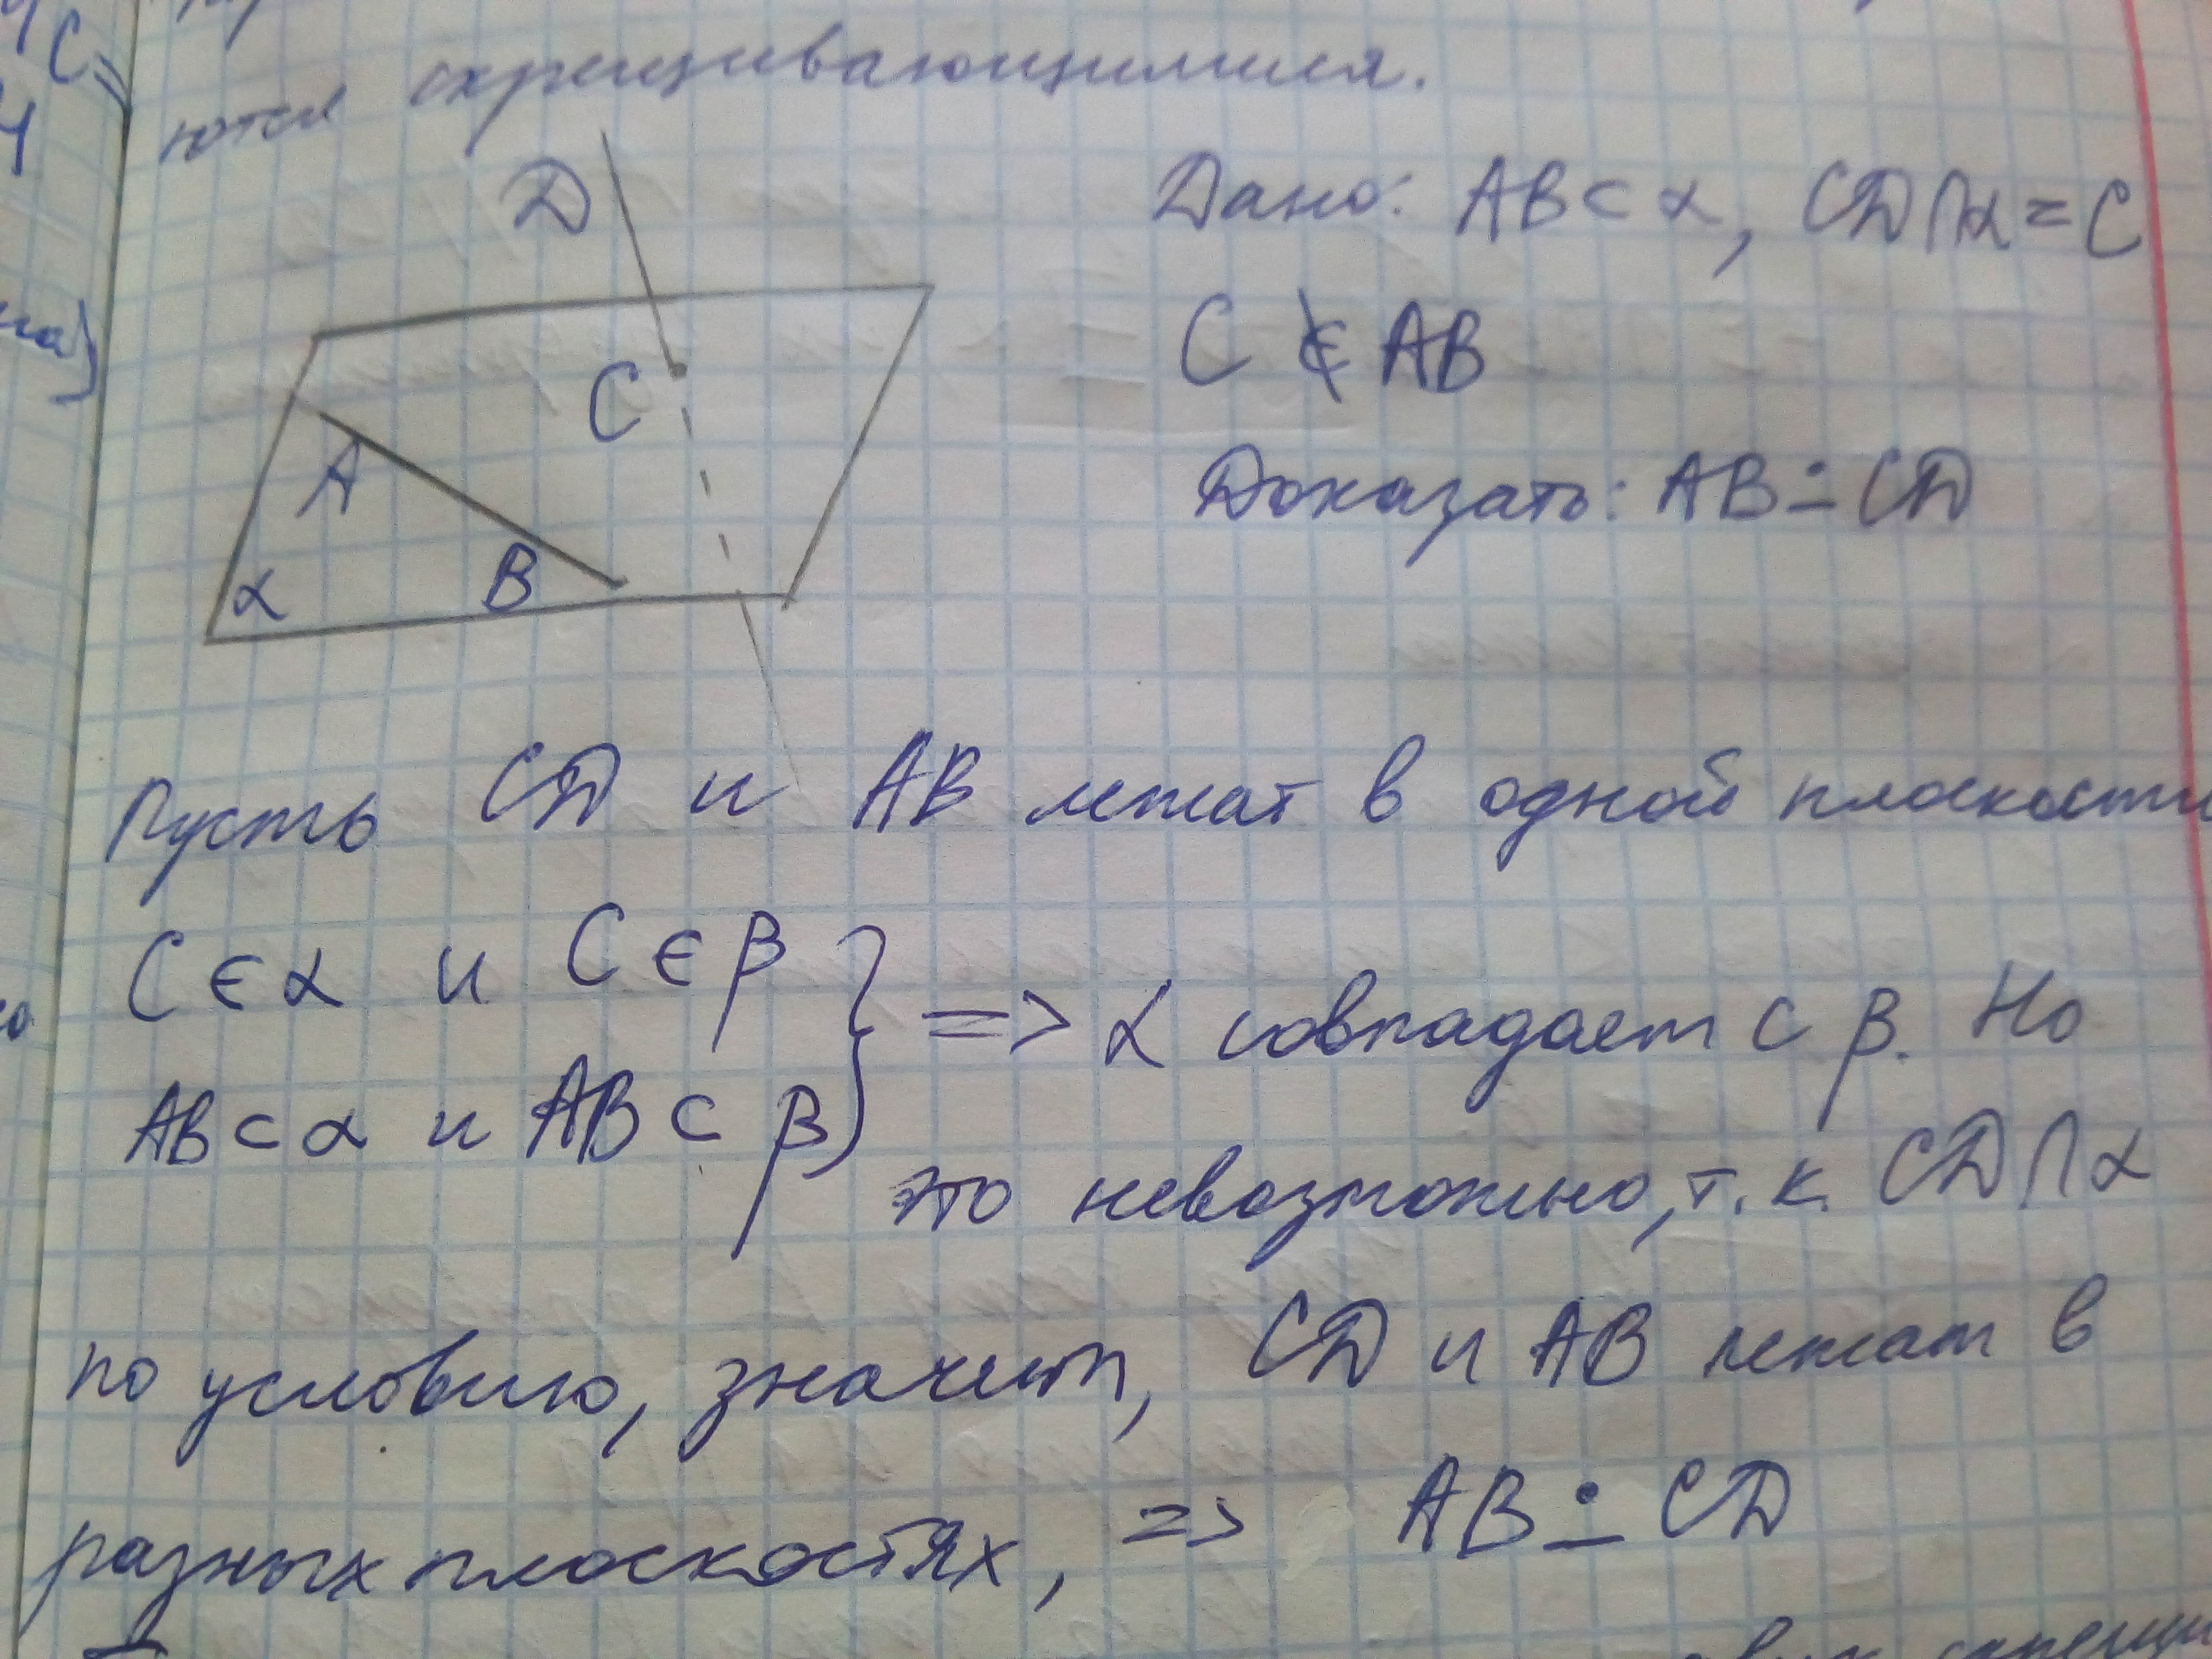 ются скрещивающимися.
D
Дано: AB ⊂ α, CD ∩ α = C
C ∉ AB
C
A
Доказать: AB ∸ CD
B
α
Пусть CD и AB лежат в одной плоскости
C ∈ α и C ∈ β
} => α совпадает с β. Но
AB ⊂ α и AB ⊂ β
это невозможно, т. к. CD ∩ α
по условию, значит, CD и AB лежат в
разных плоскостях, => AB ∸ CD